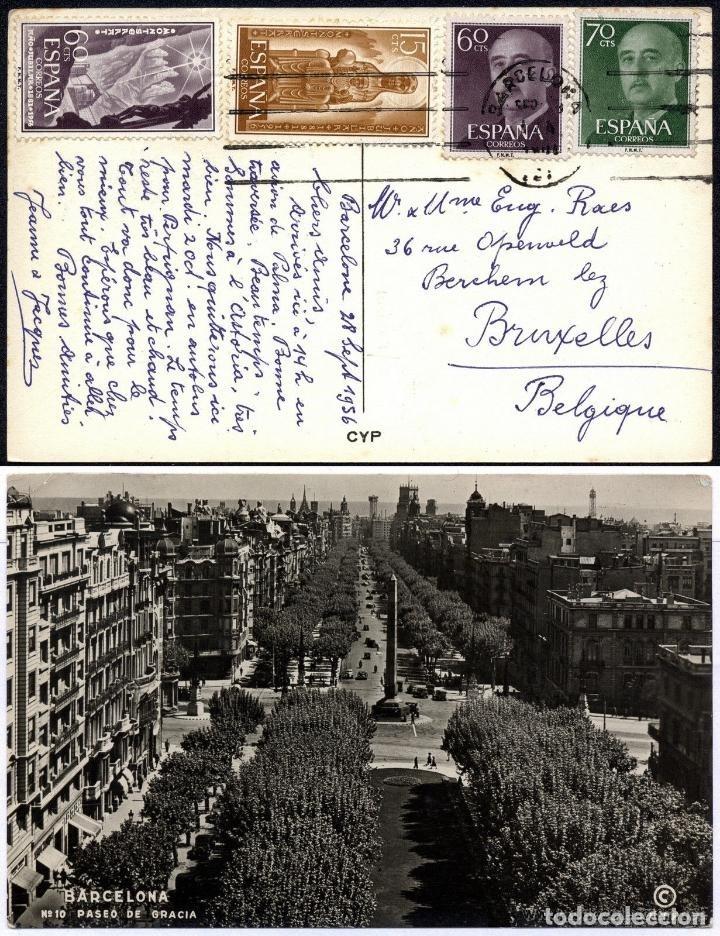 60 CTS
ESPAÑA
CORREOS
MONTSERRAT
F.N.M.T.
15 CTS
ESPAÑA
CORREOS
MONTSERRAT
60 CTS
ESPAÑA
CORREOS
F.N.M.T.
70 CTS
ESPAÑA
CORREOS
F.N.M.T.
BARCELONA
Barcelone 28 Sept 1956
Chers Amis,
Arrivés ici à 14h en
avion de Palma. Bonne
traversée. Beau temps.
Sommes à l'Astoria, très
bien. Nous quitterons ici
mardi 2 Oct. en autobus
pour Perpignan. Le temps
reste très beau et chaud.
Tout va donc pour le
mieux. Espérons que chez
vous tout continue à aller
bien. Bonnes Amitiés
Jeanne & Jacques
Mr. & Mme Eug. Raes
36 rue Openveld
Berchem lez
Bruxelles
Belgique
CYP
BARCELONA
Nº 10 PASEO DE GRACIA
©
todocoleccion